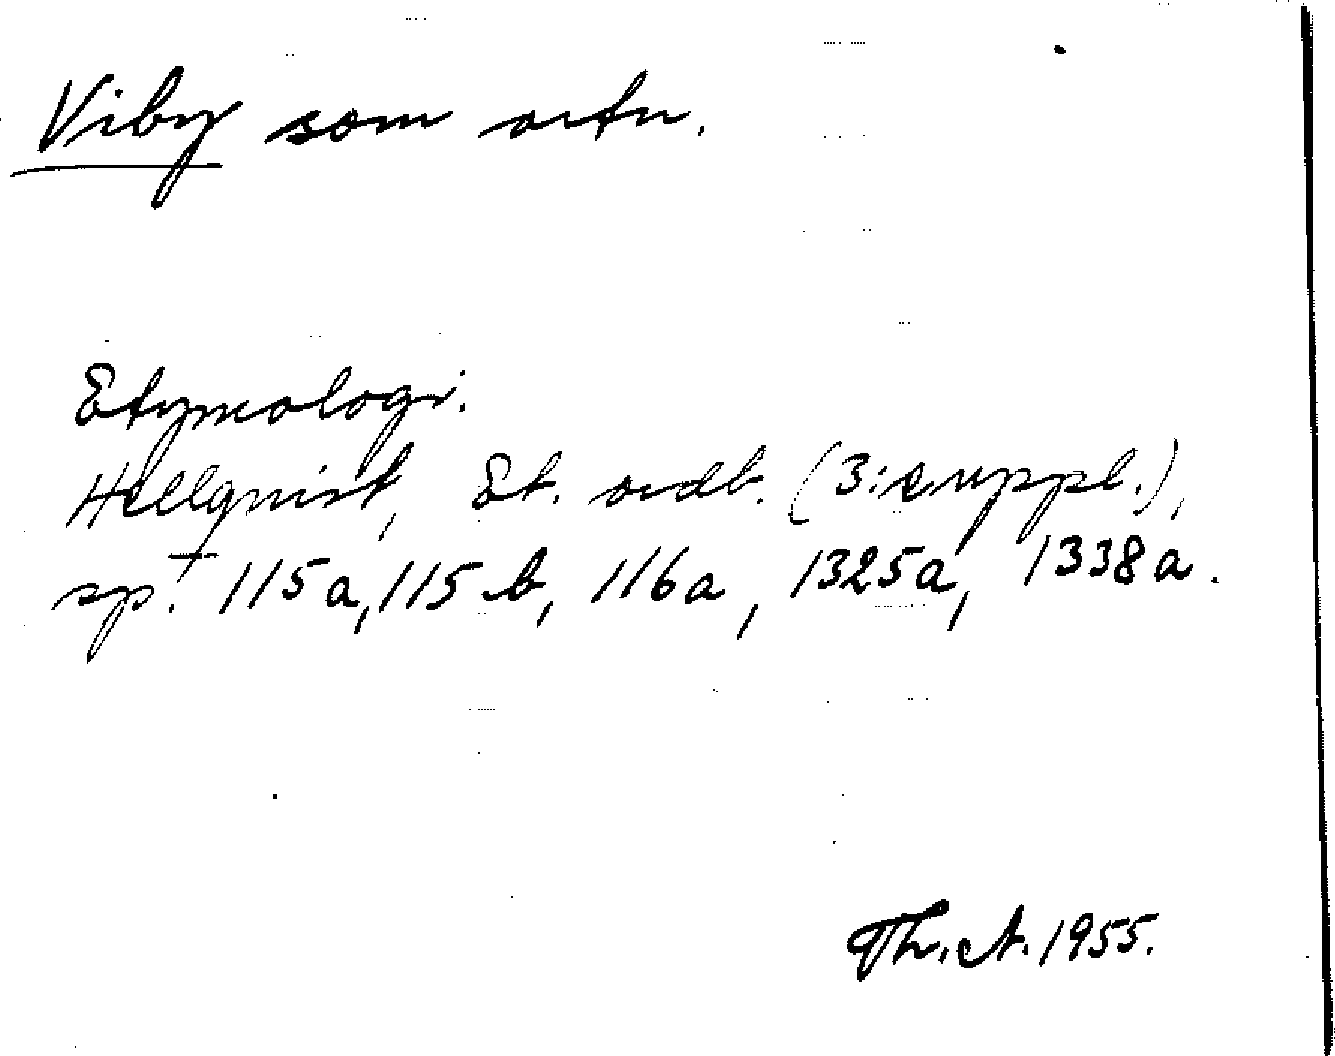 Viby som ortn.
Etymologi.
Hellquist, Et. ordb. (3:e uppl.),
sp. 115a, 115 b, 116a, 1325a, 1338a.
Th. A. 1955.